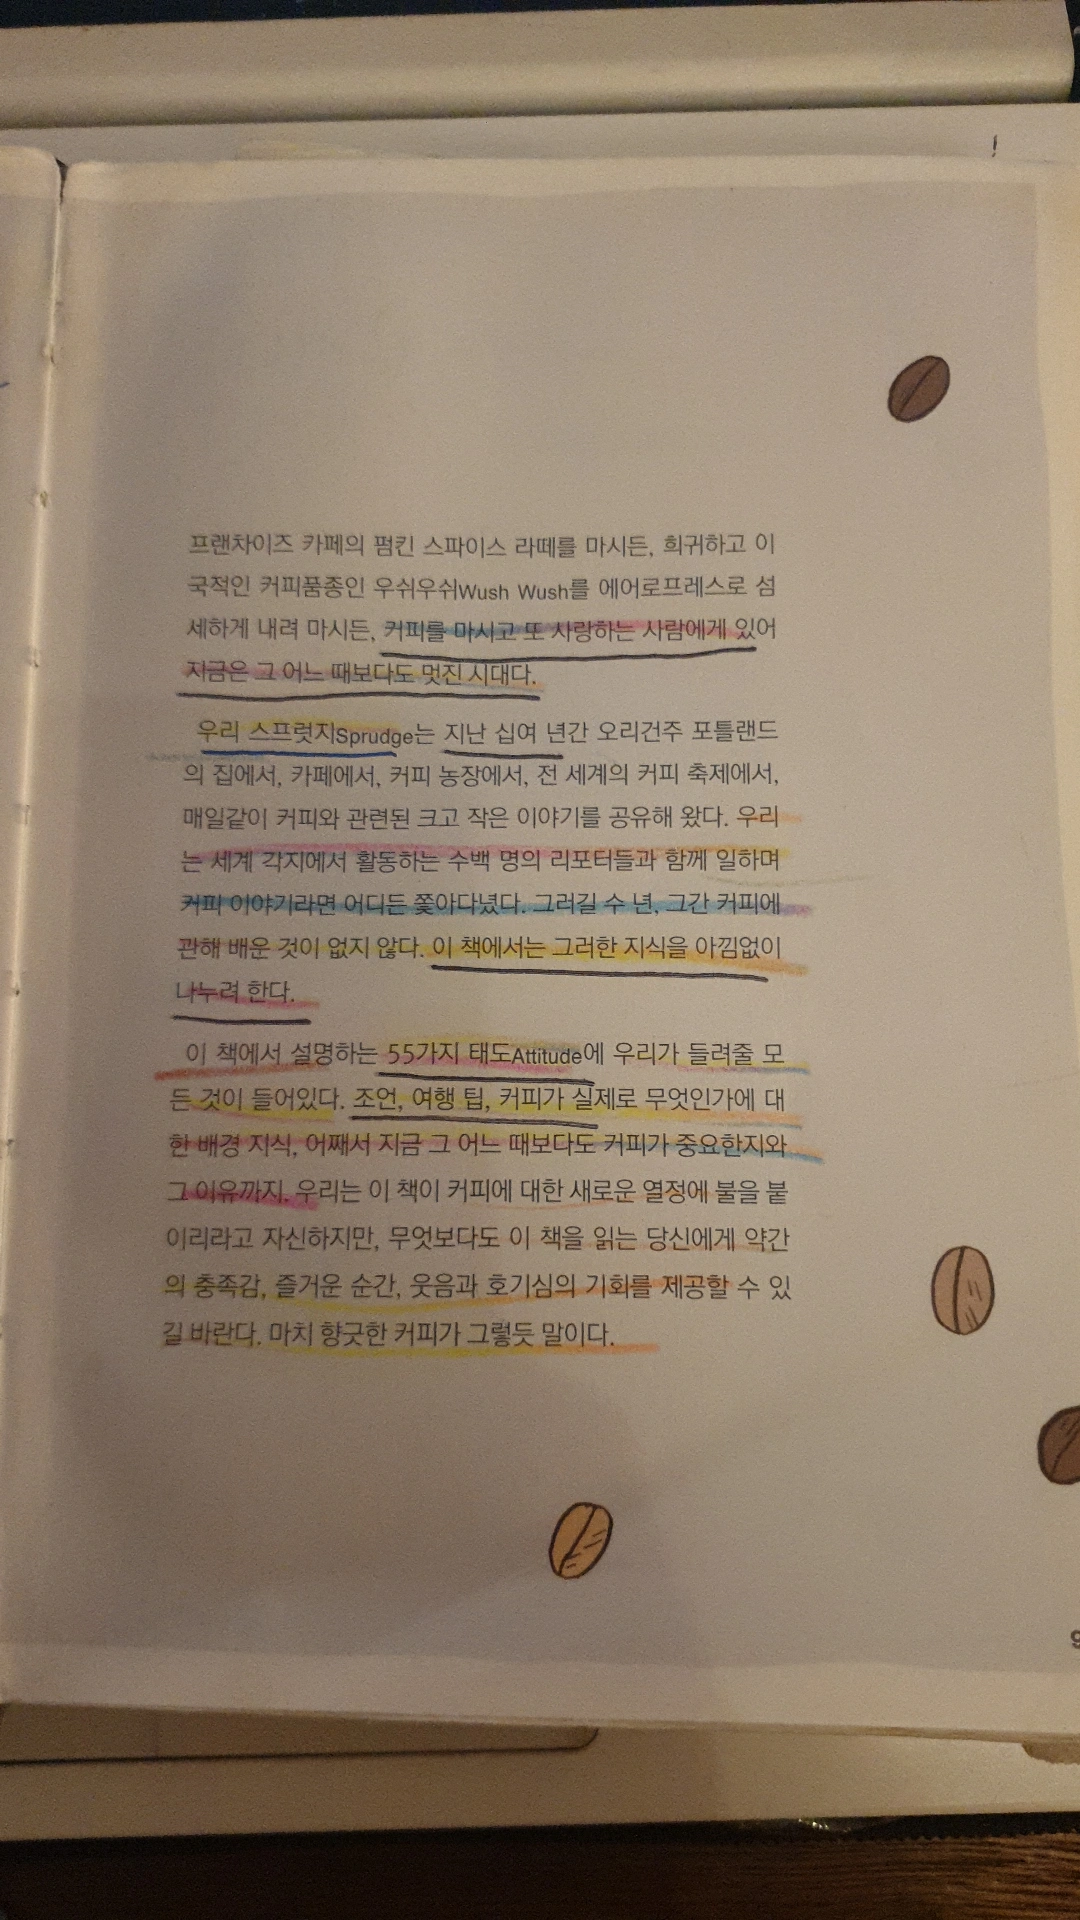 프랜차이즈 카페의 펌킨 스파이스 라떼를 마시든, 희귀하고 이
국적인 커피품종인 우쉬우쉬Wush Wush를 에어로프레스로 섬
세하게 내려 마시든, 커피를 마시고 또 사랑하는 사람에게 있어
지금은 그 어느 때보다도 멋진 시대다.
우리 스프럿지Sprudge는 지난 십여 년간 오리건주 포틀랜드
의 집에서, 카페에서, 커피 농장에서, 전 세계의 커피 축제에서,
매일같이 커피와 관련된 크고 작은 이야기를 공유해 왔다. 우리
는 세계 각지에서 활동하는 수백 명의 리포터들과 함께 일하며
커피 이야기라면 어디든 쫓아다녔다. 그러길 수 년, 그간 커피에
관해 배운 것이 없지 않다. 이 책에서는 그러한 지식을 아낌없이
나누려 한다.
이 책에서 설명하는 55가지 태도Attitude에 우리가 들려줄 모
든 것이 들어있다. 조언, 여행 팁, 커피가 실제로 무엇인가에 대
한 배경 지식, 어째서 지금 그 어느 때보다도 커피가 중요한지와
그 이유까지. 우리는 이 책이 커피에 대한 새로운 열정에 불을 붙
이리라고 자신하지만, 무엇보다도 이 책을 읽는 당신에게 약간
의 충족감, 즐거운 순간, 웃음과 호기심의 기회를 제공할 수 있
길 바란다. 마치 향긋한 커피가 그렇듯 말이다.